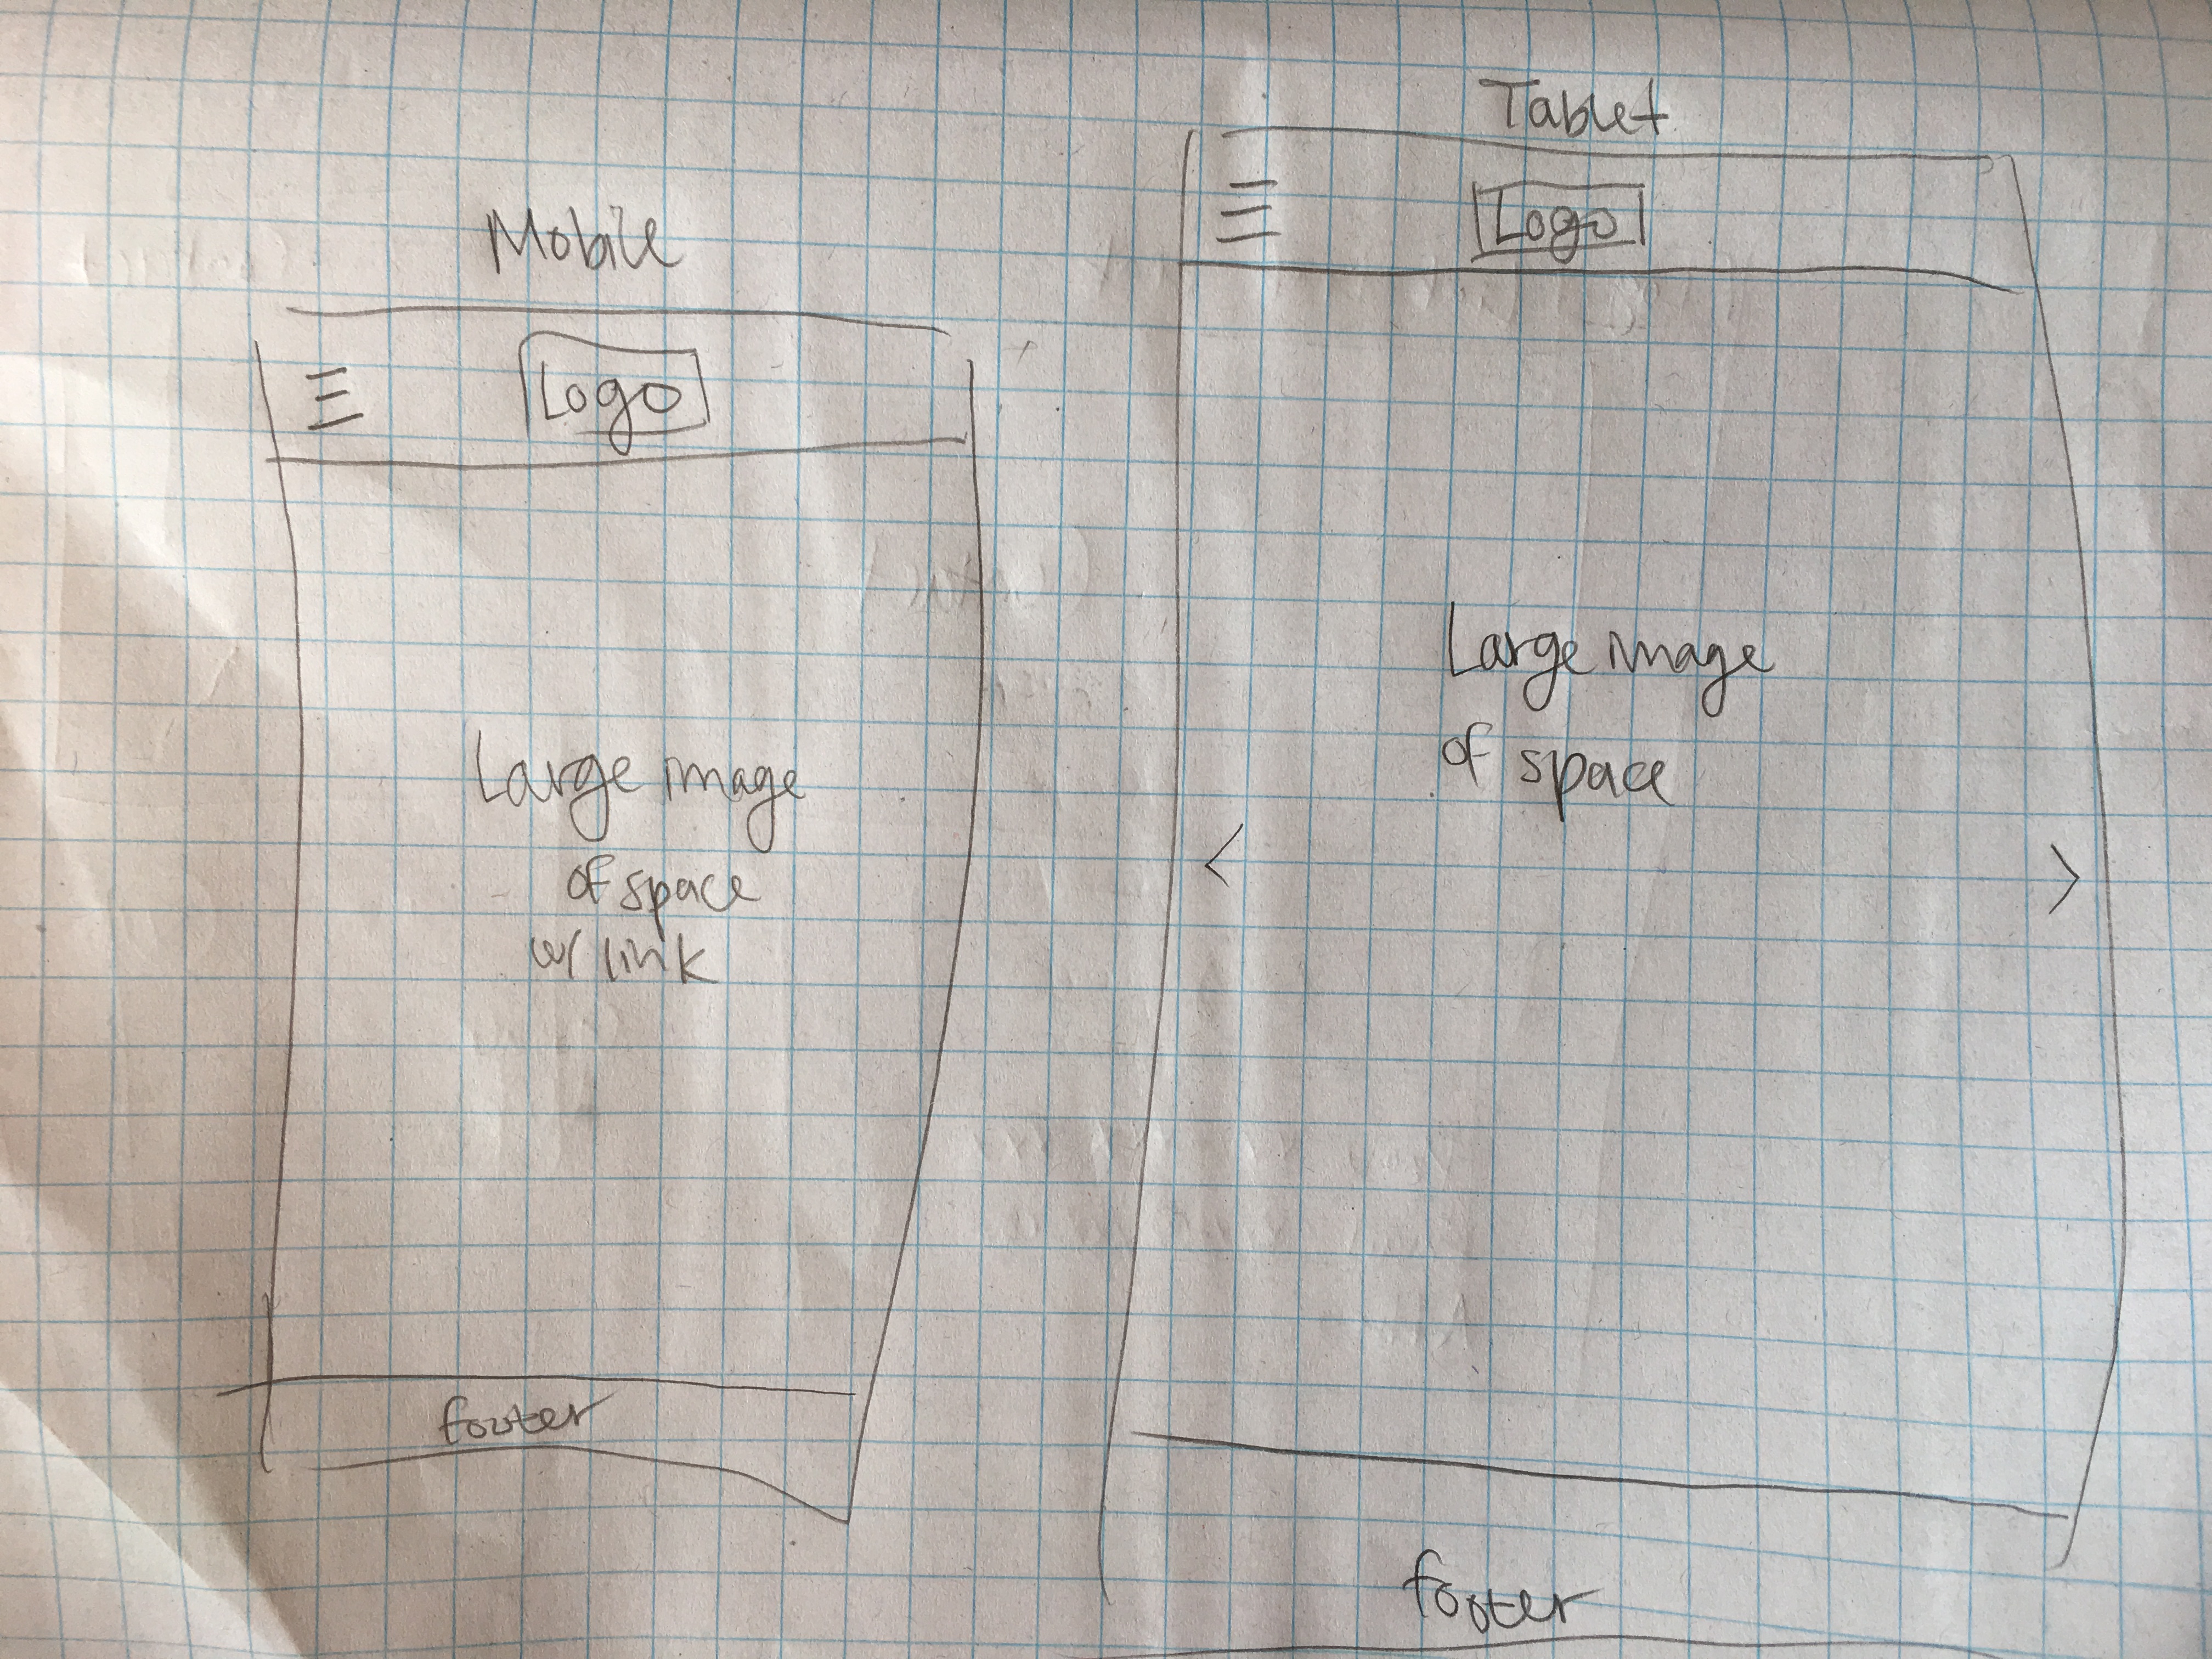 Mobile
Logo
Large image
of space
w/ link
footer
Tablet
Logo
Large image
of space
<
>
footer